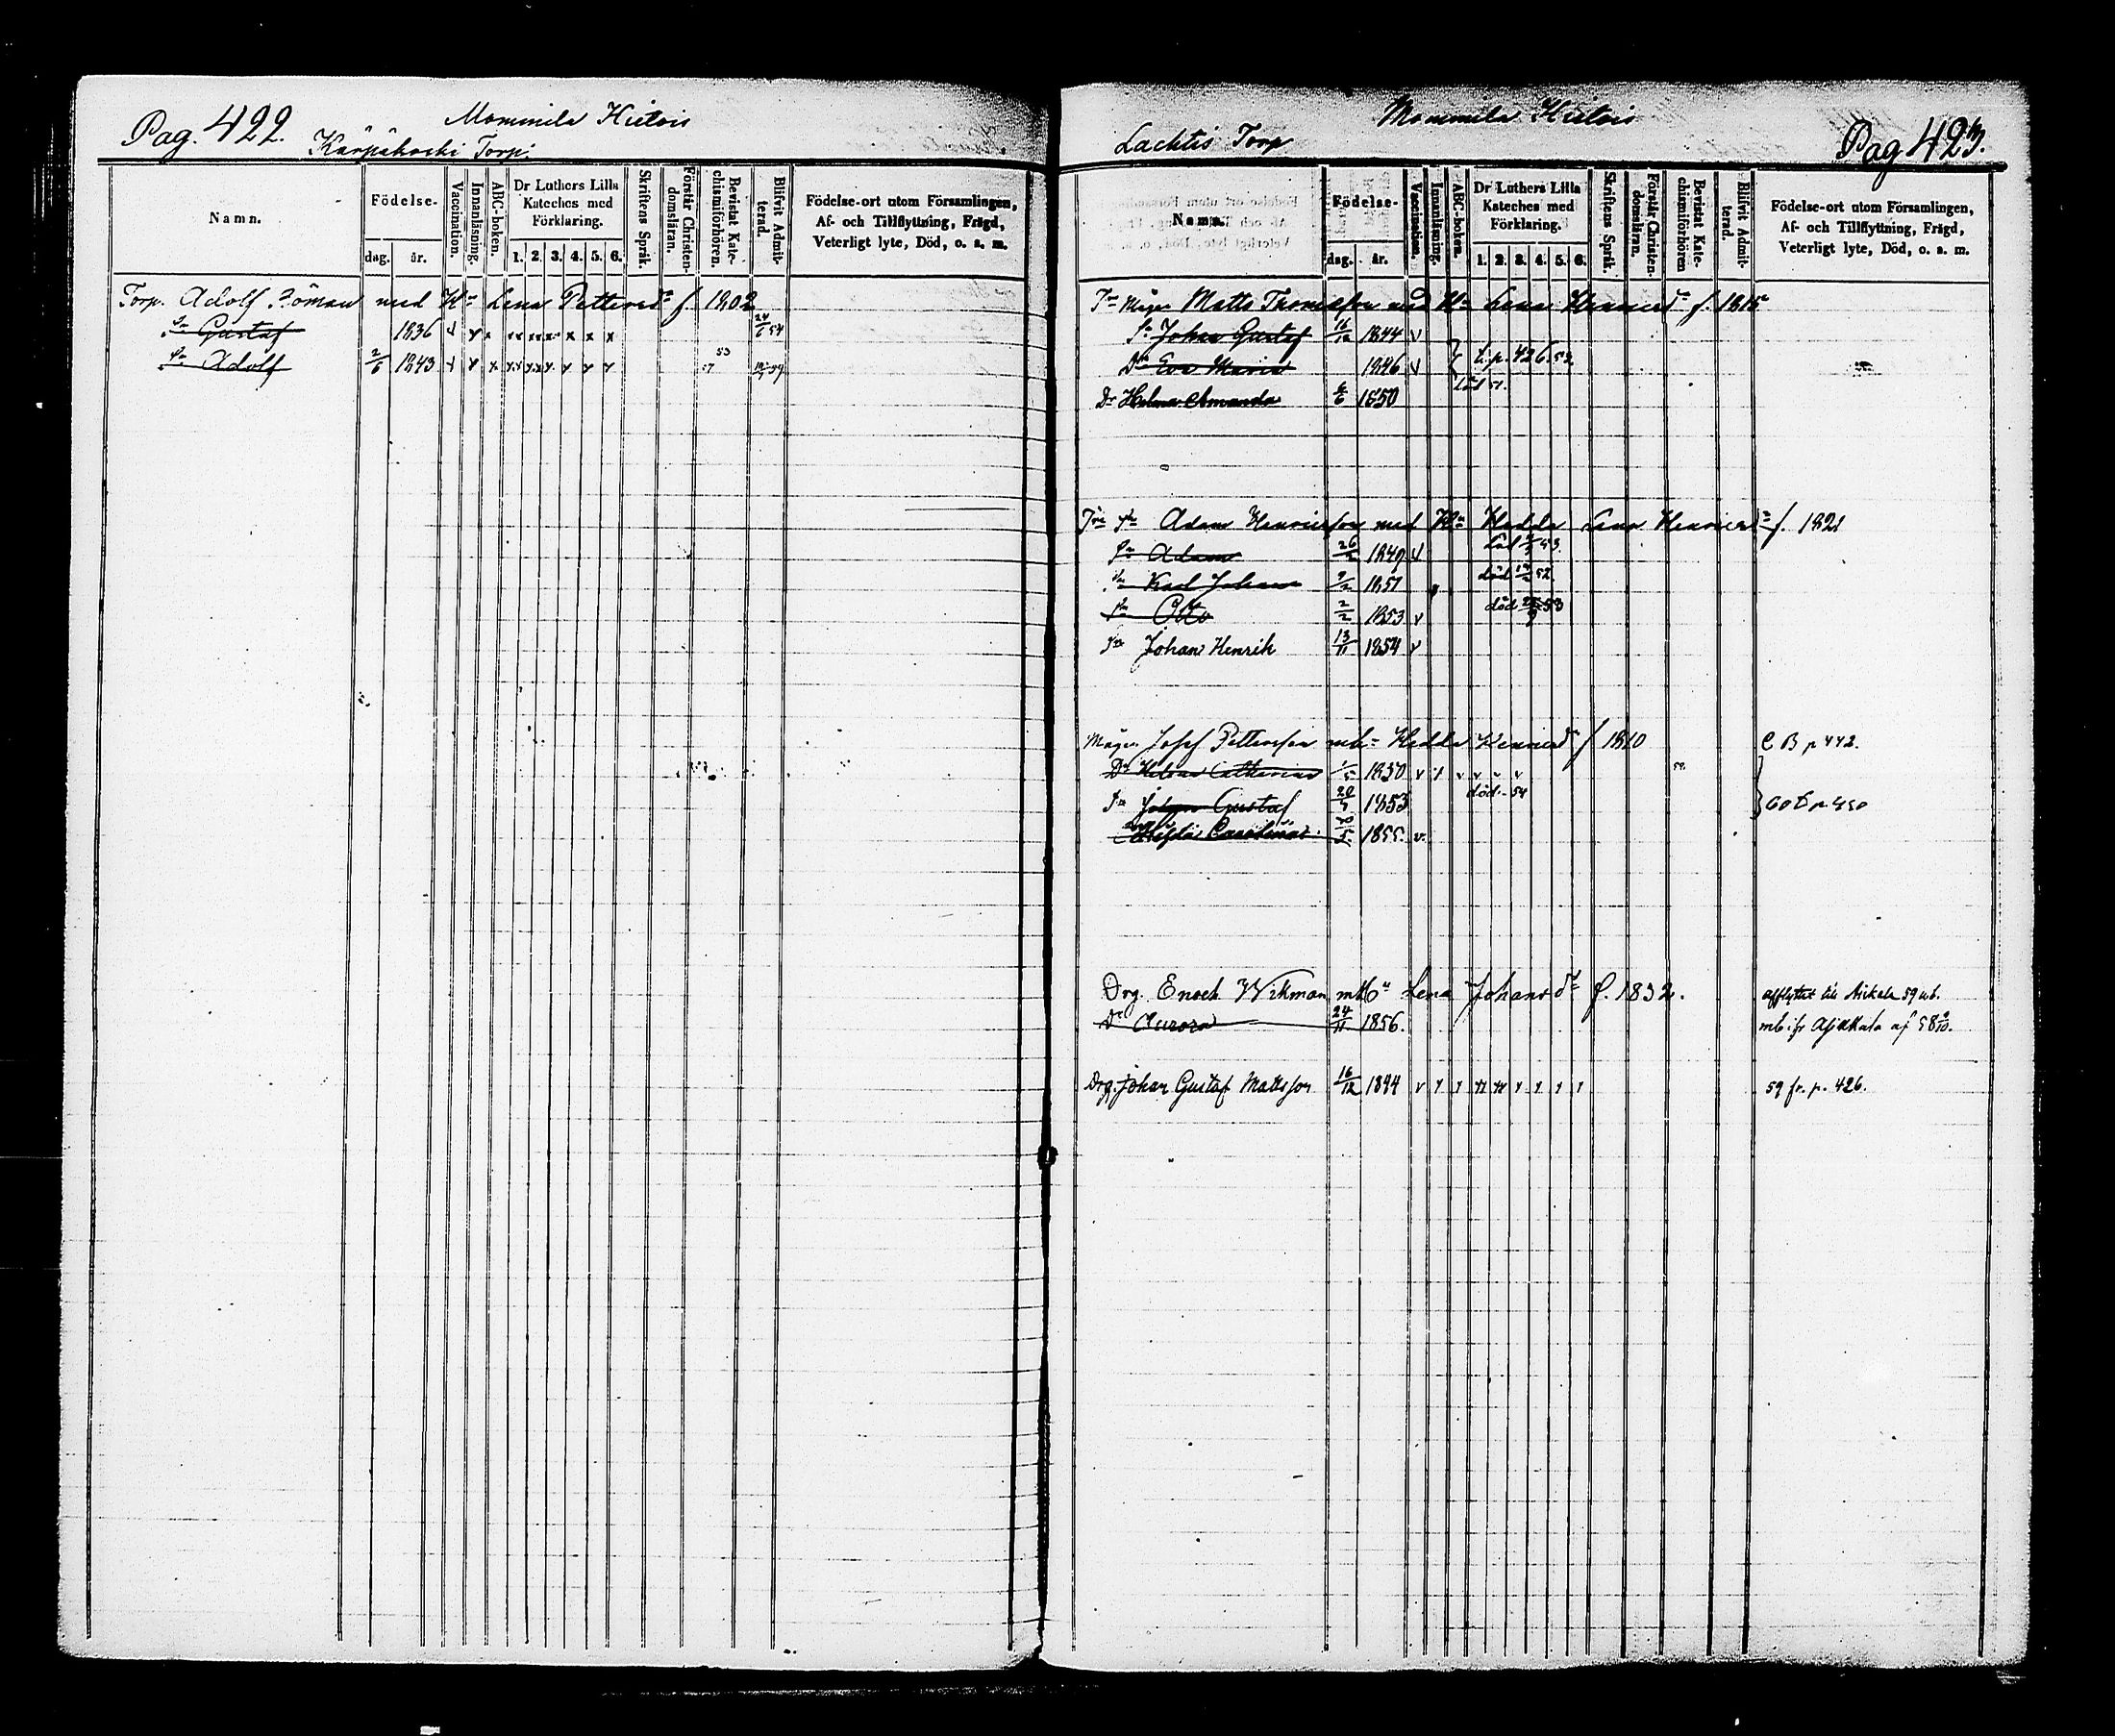 Pag. 422.
Mommila Hietois
Kärpäkoski Torp.
Namn.
Födelse-
dag. år.
Vaccination.
Innanläsning.
ABC-boken.
Dr Luthers Lilla Kateches med Förklaring.
1. 2. 3. 4. 5. 6.
Skriftens Språk.
Förstår Christendomsläran.
Bevistat Katechismiförhören.
Blifvit Admitterad.
Födelse-ort utom Församlingen,
Af- och Tillflyttning, Frägd,
Veterligt lyte, Död, o. s. m.
Torp. Adolf Böman med H. Lena Petters dr f. 1802
Sn Gustaf 1836
Sn Adolf 2/6 1843
Mommila Hietois
Lachtis Torp
Pag 423.
Namn.
Födelse-
dag. år.
Vaccination.
Innanläsning.
ABC-boken.
Dr Luthers Lilla Kateches med Förklaring.
1. 2. 3. 4. 5. 6.
Skriftens Språk.
Förstår Christendomsläran.
Bevistat Katechismiförhören
Blifvit Admitterad.
Födelse-ort utom Församlingen,
Af- och Tillflyttning, Frägd,
Veterligt lyte, Död, o. s. m.
Matts Thomasson med Hu Lena Henricsdr f. 1815
Sn Johan Gustaf 16/12 1844 v
Dr Eva Maria 1846 v t. p. 426. 52.
Dr Helena Amanda 1850
Adam Henricsson med Hu Hedda Lena Henricsdr f. 1821
Sn Adam 26/2 1849 v
Sn Karl Johan 9/2 1851 död 52.
Sn Otto 2/2 1853 v död 53
Sn Johan Henrik 13/11 1854 v
Måg. Josef Pettersson m h. Hedda Henricsdr f 1810 C B p 442.
Dr Helena Catharina 1/5 1850 v
Sn Johan Gustaf 20/9 1853 död - 54
Carolina 1855. v.
Drg. Enoch Wikman m h Lena Johansdr f. 1832. afflyttat till 59
Dr Aurora 24/11 1856.
Drg. Johan Gustaf Mattsson 16/12 1844 59 fr. p. 426.